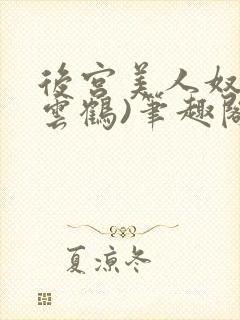 後宮美人奴
雲鶴)筆趣閣
夏涼冬